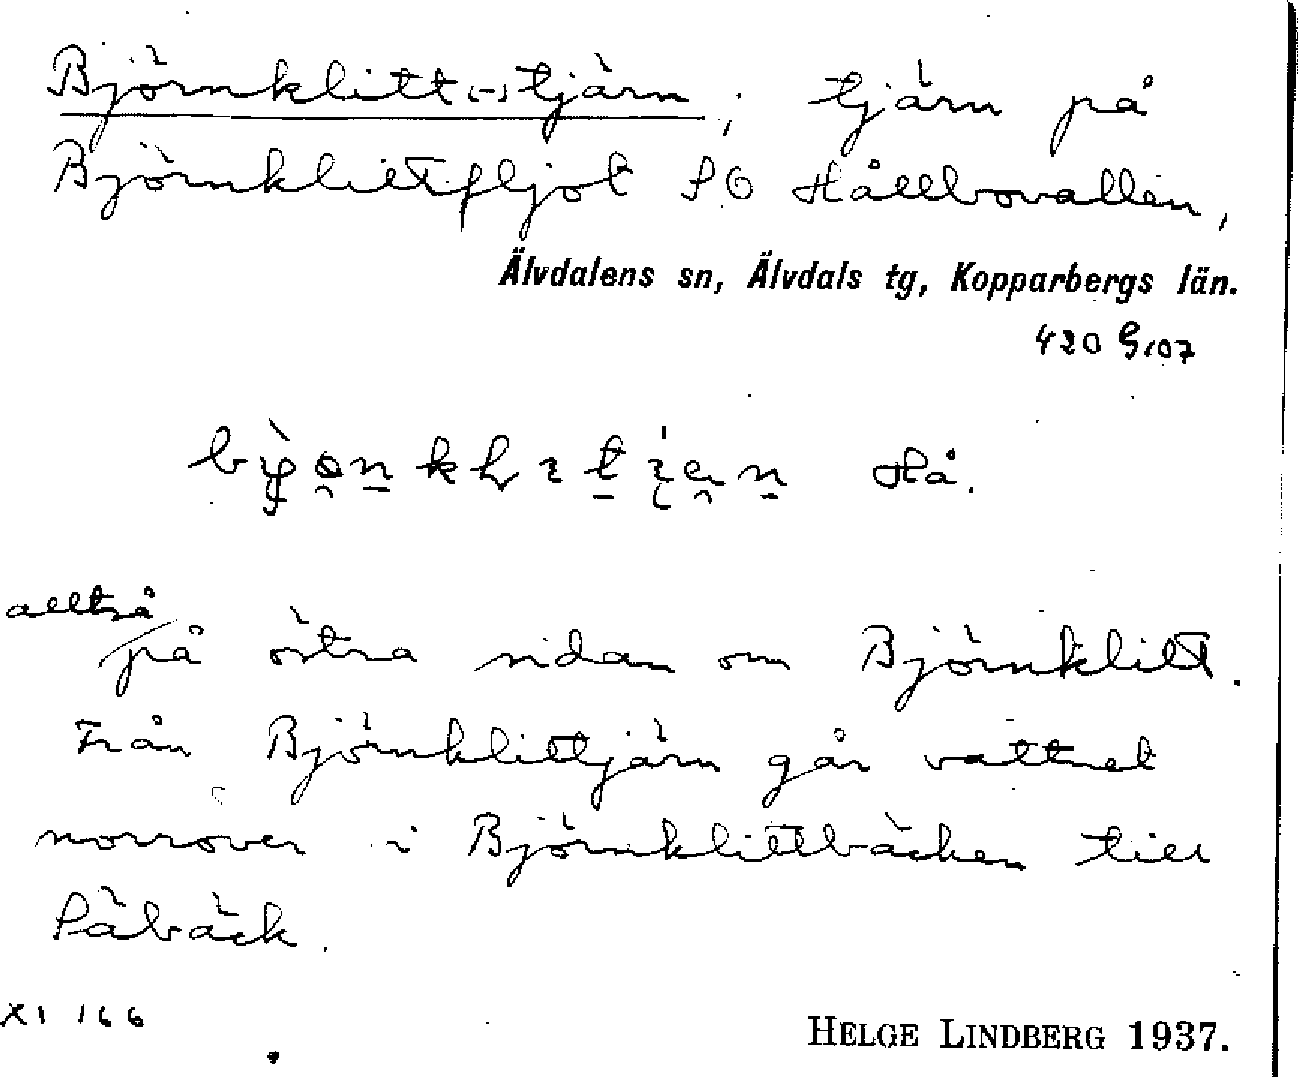 Björnklitt(-)tjärn; tjärn på
Björnklittfljot SO Hållbovallen,
Älvdalens sn, Älvdals tg, Kopparbergs län.
420 G107
Hå.
alltså
på östra sidan om Björnklitt.
Från Björnklittjärn går vattnet
norröver i Björnklittbäcken till
Säbäck.
XI 166
HELGE LINDBERG 1937.